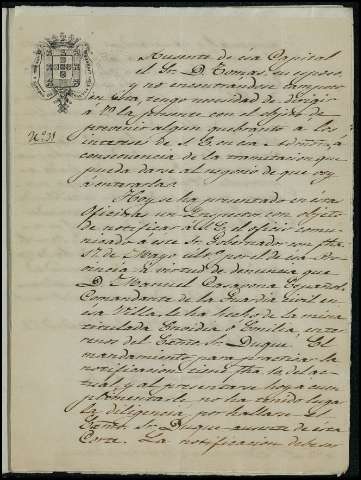 Ausente de esa Capital
el Sr. D. Tomas, su esposo,
y no encontrandose tampoco
en esta tengo necesidad de dirigir
á V. la presente con el objeto de
prevenir algun quebranto a los
Nº 31
intereses de S. Excia
consecuencia de la tramitacion que
pueda darse al negocio de que voy
a enterarla.
Hoy se ha presentado en esta
Oficinas un Inspector con objeto
de notificar á S. E. el oficio comu-
nicado a este Sr. Gobernador con fha.
17 de Mayo ulto. por el de esa Pro-
vincia á virtud de denuncia que
D. Manuel Español,
Comandante de la Guardia Civil en
esa Villa, le ha hecho de la mina
titulada Emilia, en ter-
renos del Exmo. Sr. Duque. El
mandamiento para practicar la
notificacion tiene fha. 12 del ac-
tual, y al presentarse hoy a cum-
plimentarle no ha tenido lugar
la diligencia, por hallarse el
Exmo. Sr. Duque ausente de esta
Corte. La notificacion debera